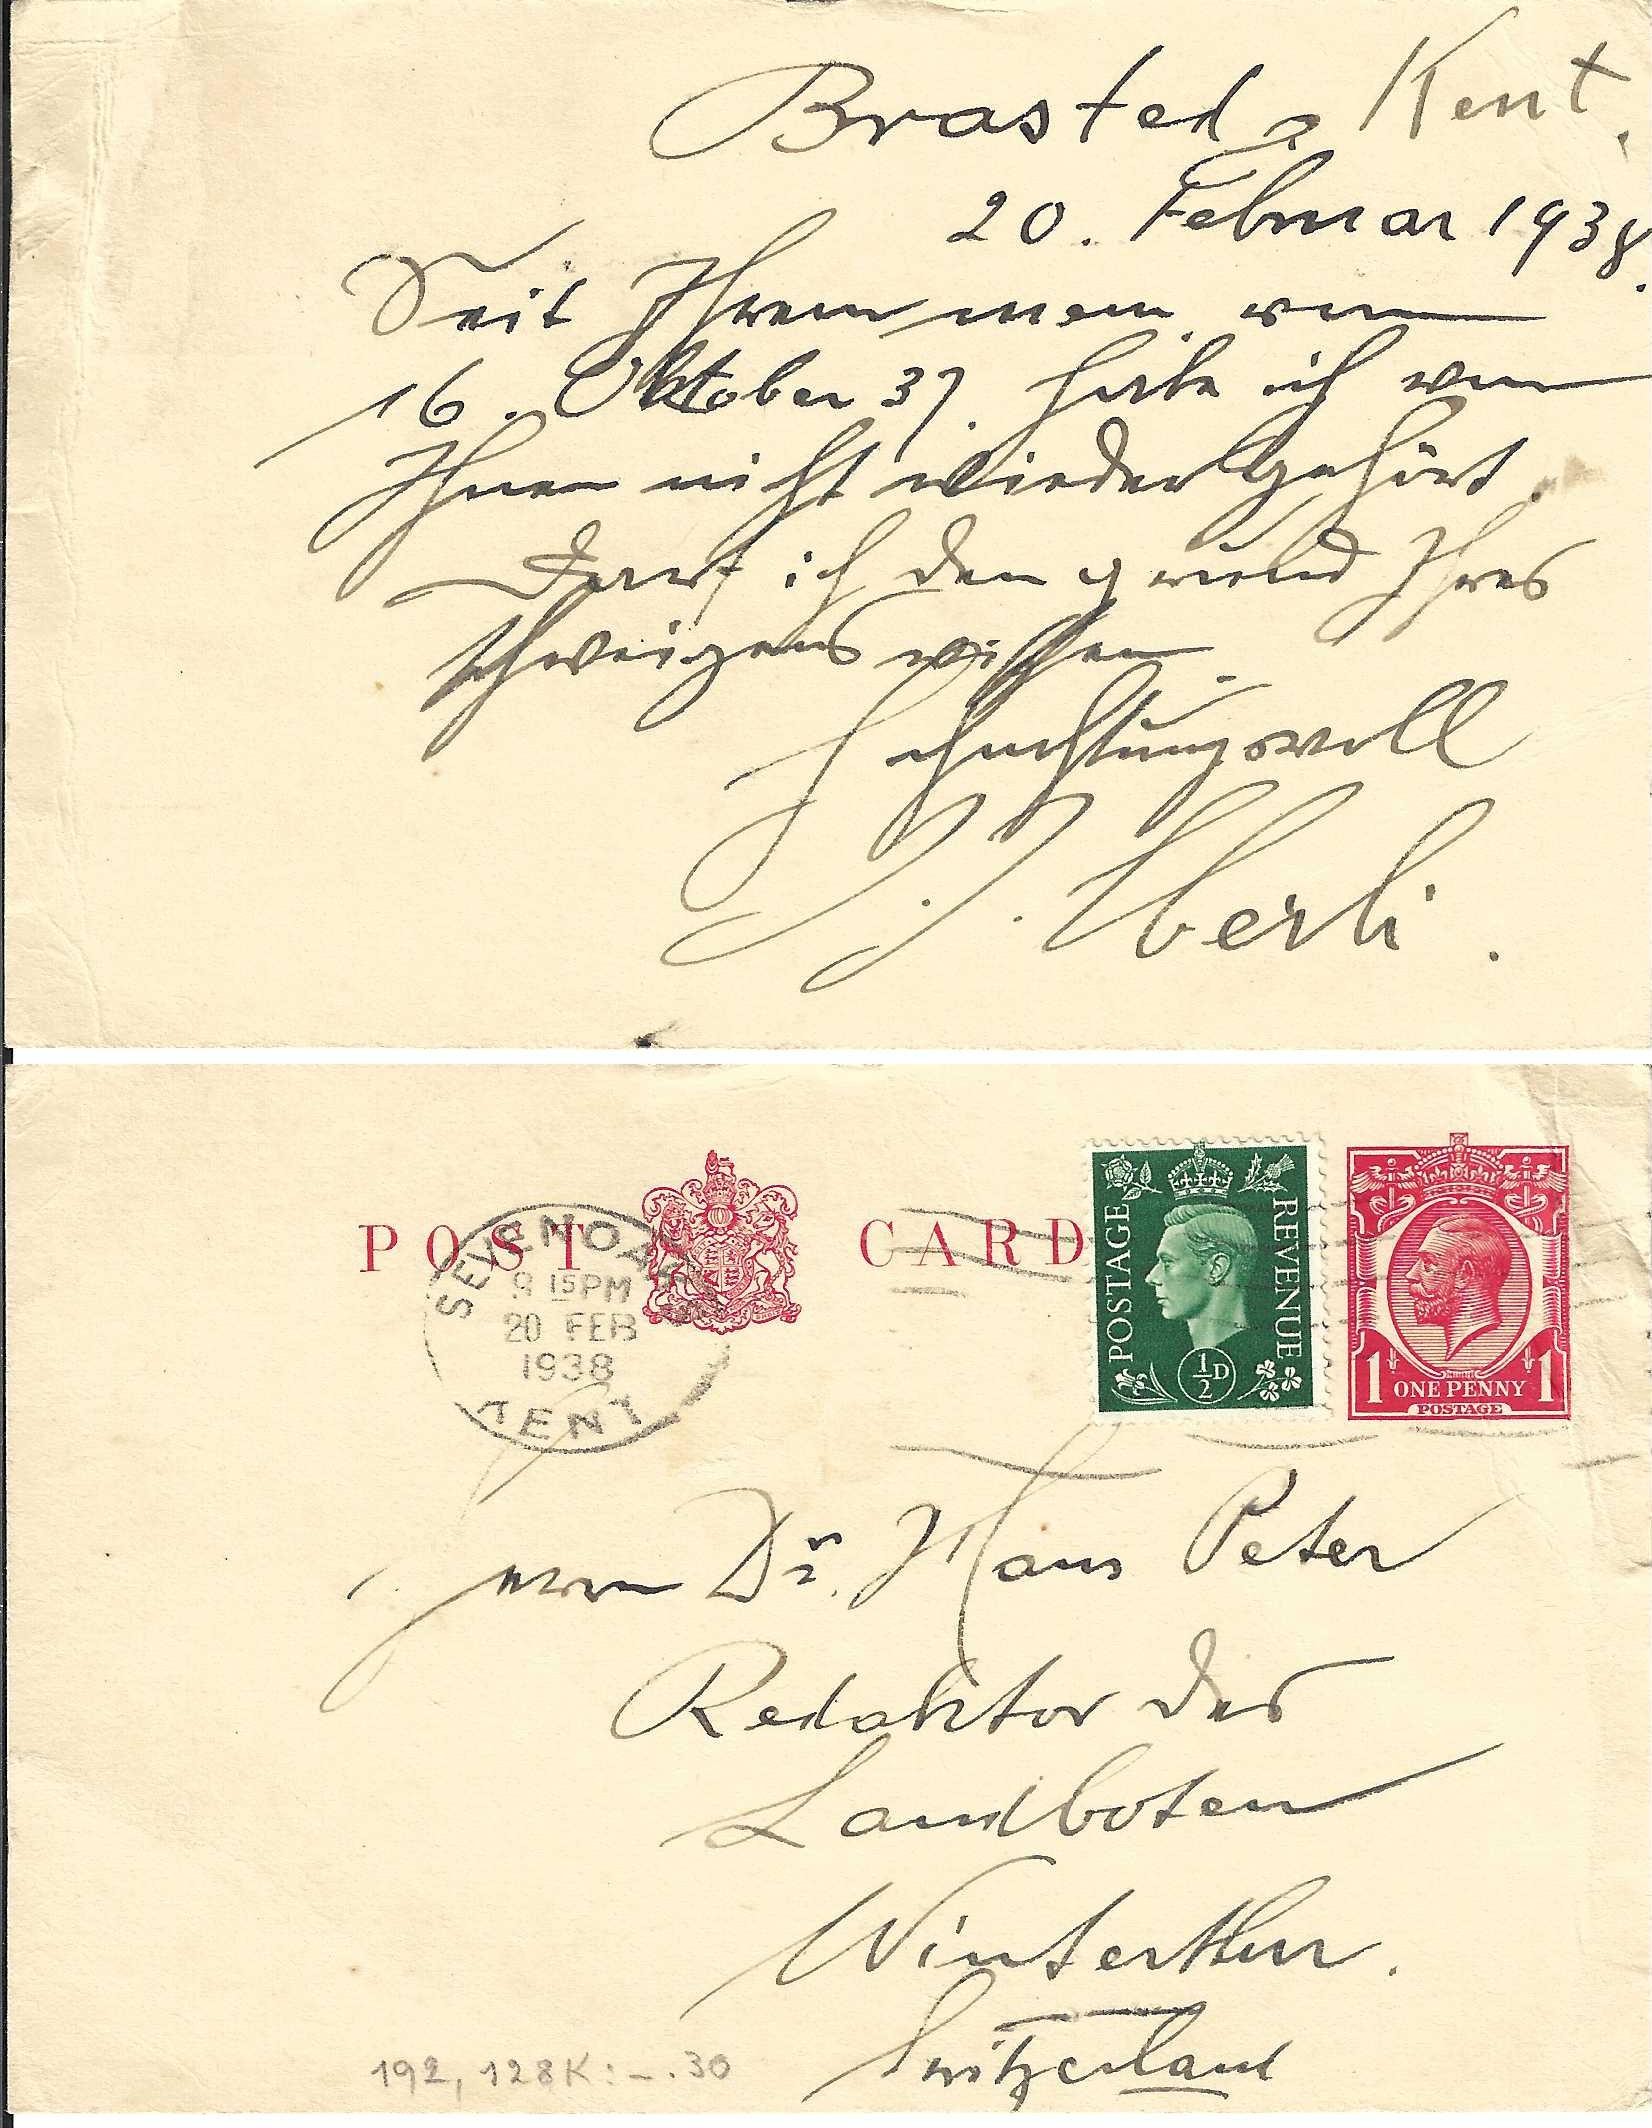 Brasted, Kent.
20. Februar 1938.
Seit Ihrem vom
16. Oktober 37. habe ich von
Ihnen nicht wieder gehört.
Darf ich den grund Ihres
schweigens wissen.
Hochachtungsvoll
J. J. Eberli.
POST CARD
SEVENOAKS
15 PM
20 FEB
1938
KENT
POSTAGE REVENUE
½D
1 ONE PENNY 1
POSTAGE
Herrn Dr. Hans Peter
Redaktor des
Landboten
Winterthur.
Switzerland
192, 128K: -.30